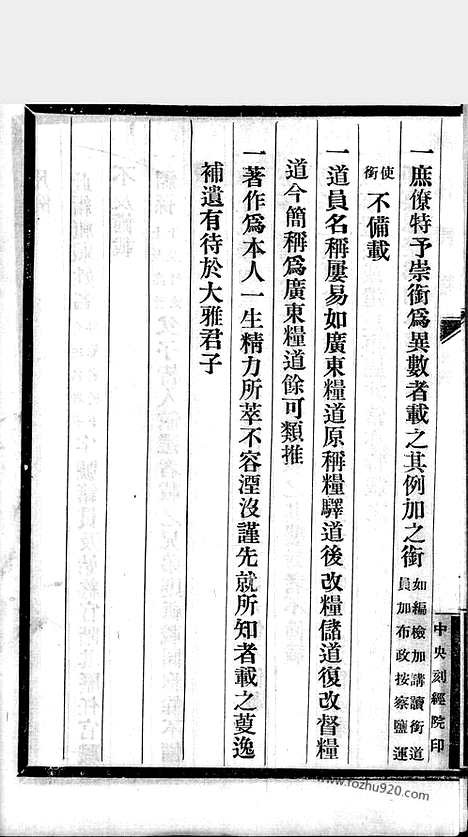 一庶僚特予崇銜爲異數者載之其例加之銜如編檢加講讀銜道員加布政按察鹽運
使銜不備載
一道員名稱屢易如廣東糧道原稱糧驛道後改糧儲道復改督糧
道今簡稱爲廣東糧道餘可類推
一著作爲本人一生精力所萃不容湮沒謹先就所知者載之蒐逸
補遺有待於大雅君子
中央刻經院印
www.fozhu920.com